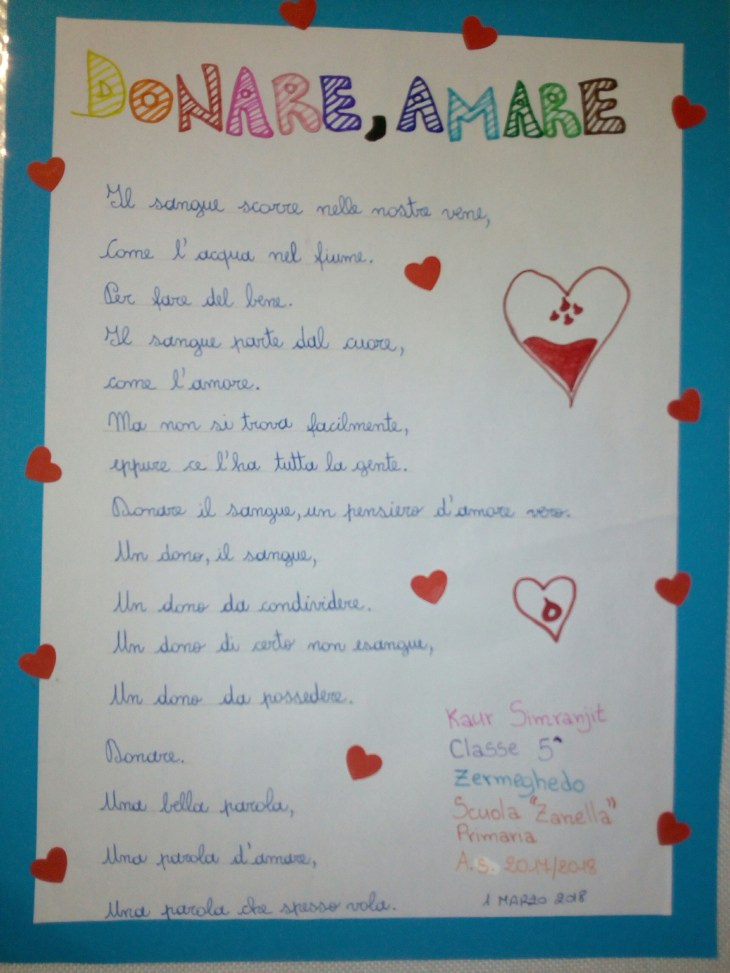 DONARE, AMARE
Il sangue scorre nelle nostre vene,
Come l'acqua nel fiume.
Per fare del bene.
Il sangue parte dal cuore,
come l'amore.
Ma non si trova facilmente,
eppure ce l'ha tutta la gente.
Donare il sangue, un pensiero d'amore vero.
Un dono, il sangue,
Un dono da condividere.
Un dono di certo non esangue,
Un dono da possedere.
Donare.
Una bella parola,
Una parola d'amare,
Una parola che spesso vola.
Kaur Simranjit
Classe 5^
Zermeghedo
Scuola "Zanella"
Primaria
A.S. 2017/2018
1 MARZO 2018